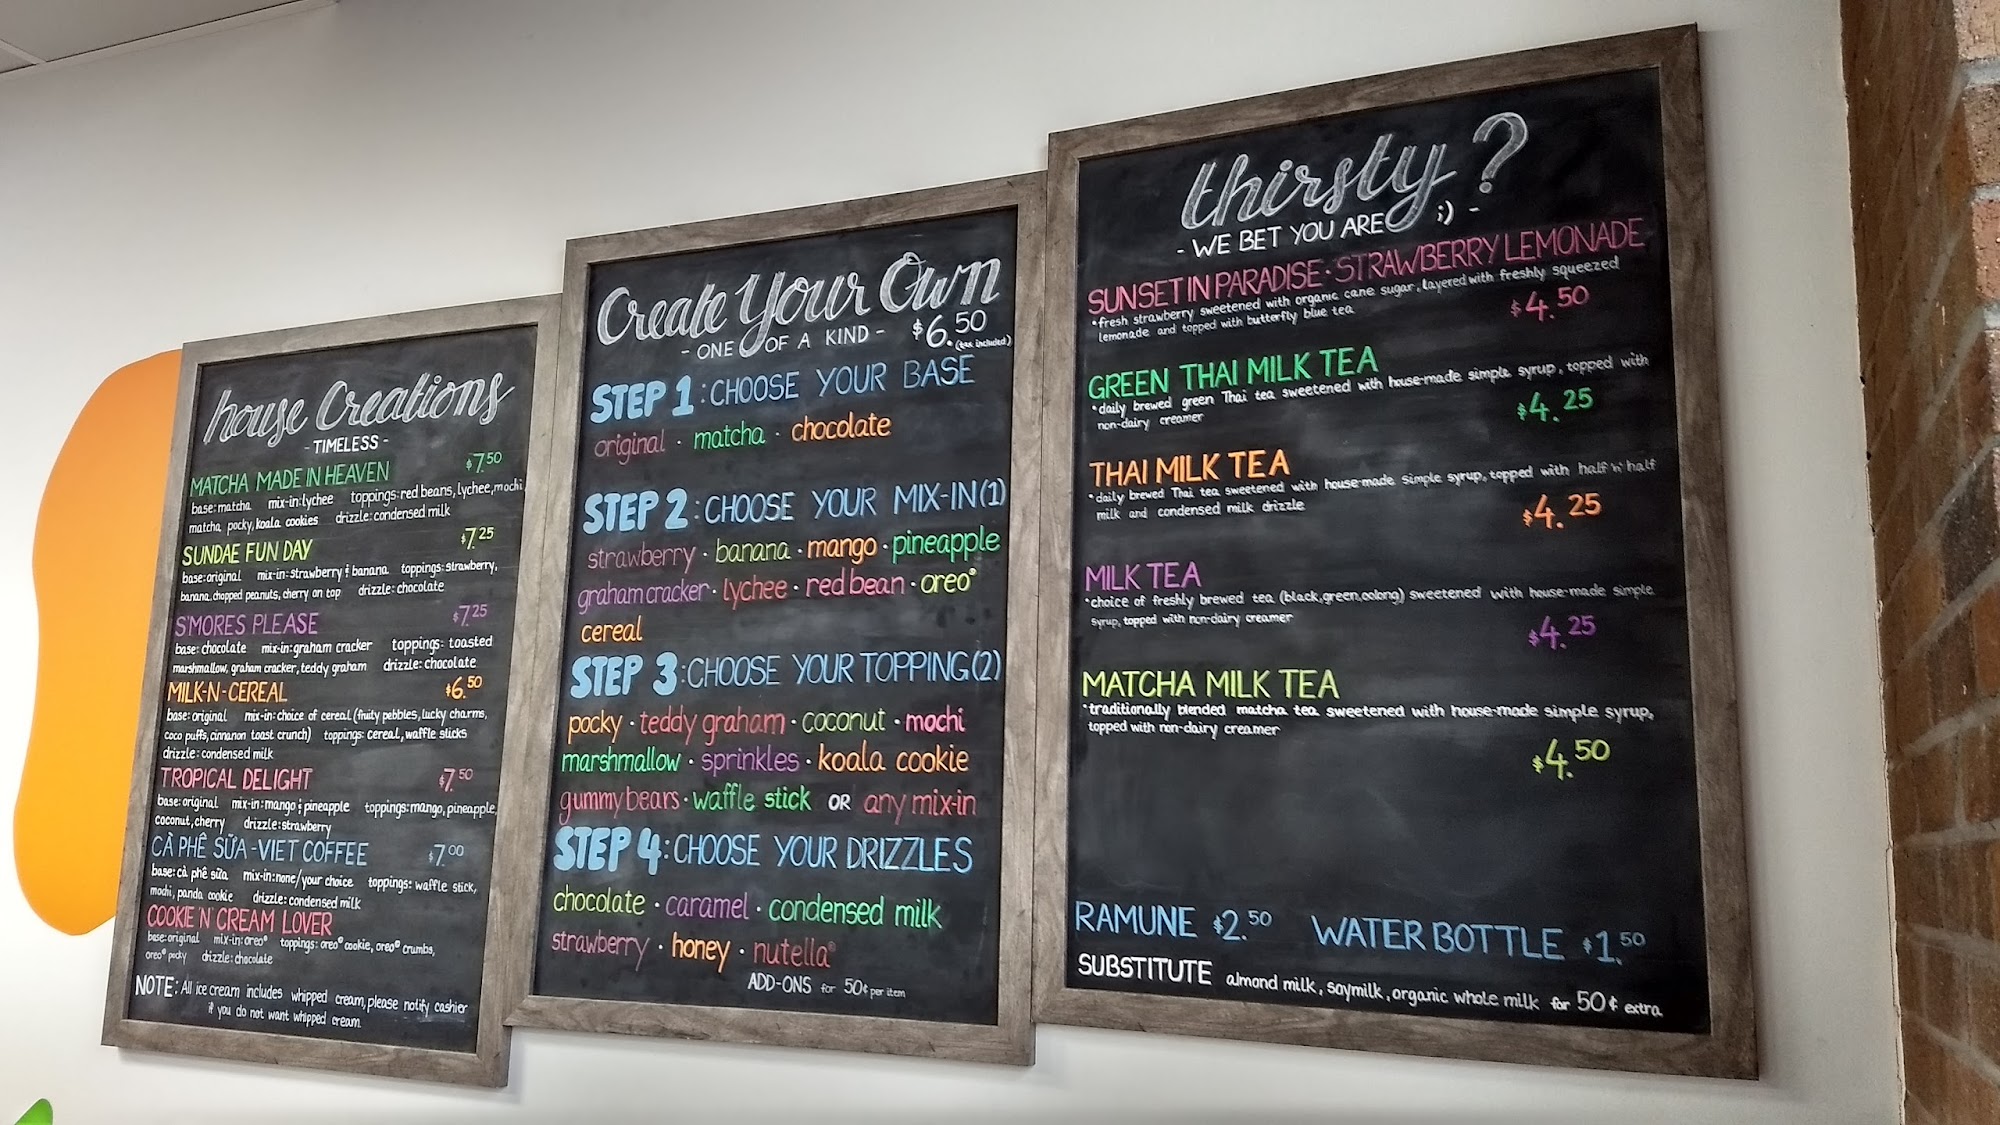 house Creations
- TIMELESS -
MATCHA MADE IN HEAVEN $7.50
base: matcha mix-in: lychee toppings: red beans, lychee, mochi
matcha pocky, koala cookies drizzle: condensed milk
SUNDAE FUN DAY $7.25
base: original mix-in: strawberry & banana toppings: strawberry,
banana, chopped peanuts, cherry on top drizzle: chocolate
S'MORES PLEASE $7.25
base: chocolate mix-in: graham cracker toppings: toasted
marshmallow, graham cracker, teddy graham drizzle: chocolate
MILK-N-CEREAL $6.50
base: original mix-in: choice of cereal (fruity pebbles, lucky charms,
coco puffs, cinnamon toast crunch) toppings: cereal, waffle sticks
drizzle: condensed milk
TROPICAL DELIGHT $7.50
base: original mix-in: mango & pineapple toppings: mango, pineapple,
coconut, cherry drizzle: strawberry
CÀ PHÊ SỮA - VIET COFFEE $7.00
base: cà phê sữa mix-in: none/your choice toppings: waffle stick,
mochi, panda cookie drizzle: condensed milk
COOKIE N' CREAM LOVER
base: original mix-in: oreo® toppings: oreo® cookie, oreo® crumbs,
oreo® pocky drizzle: chocolate
NOTE: All ice cream includes whipped cream, please notify cashier
if you do not want whipped cream.
Create Your Own
- ONE OF A KIND - $6.50 (tax included)
STEP 1: CHOOSE YOUR BASE
original · matcha · chocolate
STEP 2: CHOOSE YOUR MIX-IN (1)
strawberry · banana · mango · pineapple
graham cracker · lychee · red bean · oreo®
cereal
STEP 3: CHOOSE YOUR TOPPING (2)
pocky · teddy graham · coconut · mochi
marshmallow · sprinkles · koala cookie
gummy bears · waffle stick OR any mix-in
STEP 4: CHOOSE YOUR DRIZZLES
chocolate · caramel · condensed milk
strawberry · honey · nutella®
ADD-ONS for 50¢ per item
thirsty?
- WE BET YOU ARE ;) -
SUNSET IN PARADISE · STRAWBERRY LEMONADE
• fresh strawberry sweetened with organic cane sugar, layered with freshly squeezed
lemonade and topped with butterfly blue tea
$4.50
GREEN THAI MILK TEA
• daily brewed green Thai tea sweetened with house-made simple syrup, topped with
non-dairy creamer
$4.25
THAI MILK TEA
• daily brewed Thai tea sweetened with house-made simple syrup, topped with half 'n' half
milk and condensed milk drizzle
$4.25
MILK TEA
• choice of freshly brewed tea (black, green, oolong) sweetened with house-made simple
syrup, topped with non-dairy creamer
$4.25
MATCHA MILK TEA
• traditionally blended matcha tea sweetened with house-made simple syrup,
topped with non-dairy creamer
$4.50
RAMUNE $2.50 WATER BOTTLE $1.50
SUBSTITUTE almond milk, soymilk, organic whole milk for 50¢ extra